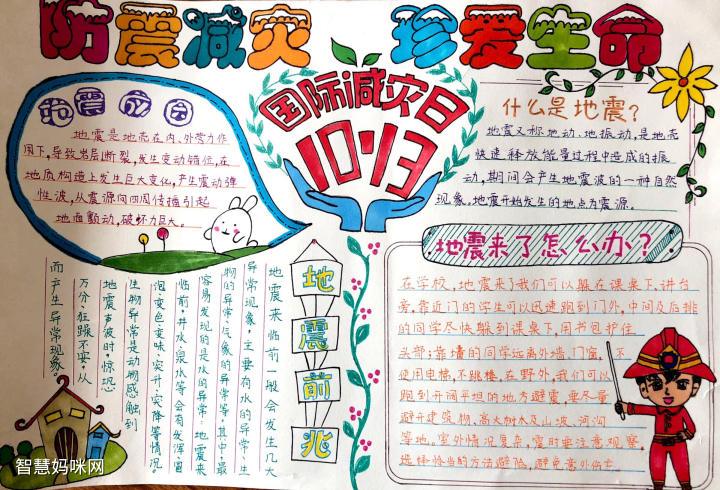 防震减灾 珍爱生命
国际减灾日
10·13
地震成因
地震是地壳在内、外营力作
用下,导致岩层断裂,发生变动错位,在
地质构造上发生巨大变化,产生震动弹
性波,从震源向四周传播引起
地面颤动,破坏力巨大。
什么是地震?
地震又称地动、地振动,是地壳
快速释放能量过程中造成的振
动,期间会产生地震波的一种自然
现象。地震开始发生的地点为震源。
地震前兆
地震来临前一般会发生几大
异常现象,主要有水的异常、生
物的异常、气象的异常等。其中,最
容易发现的是水的异常:地震来
临前,井水、泉水等会有发浑、冒
泡、变色、变味、突升、突降等情况。
生物异常是动物感触到
地震声波时,惊恐
万分、狂躁不安,从
而产生异常现象。
地震来了怎么办?
在学校,地震来了我们可以躲在课桌下、讲台
旁,靠近门的学生可以迅速跑到门外,中间及后排
的同学尽快躲到课桌下,用书包护住
头部;靠墙的同学远离外墙、门窗,不
使用电梯,不跳楼。在野外,我们可以
跑到开阔平坦的地方避震,要尽量
避开建筑物、高大树木及山坡、河沟
等地。室外情况复杂,震时要注意观察,
选择恰当的方法避险,避免意外伤亡
智慧妈咪网